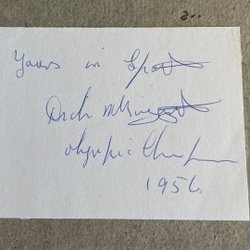 Yours in Sport
Dick McTaggart
Olympic Champion
1956.